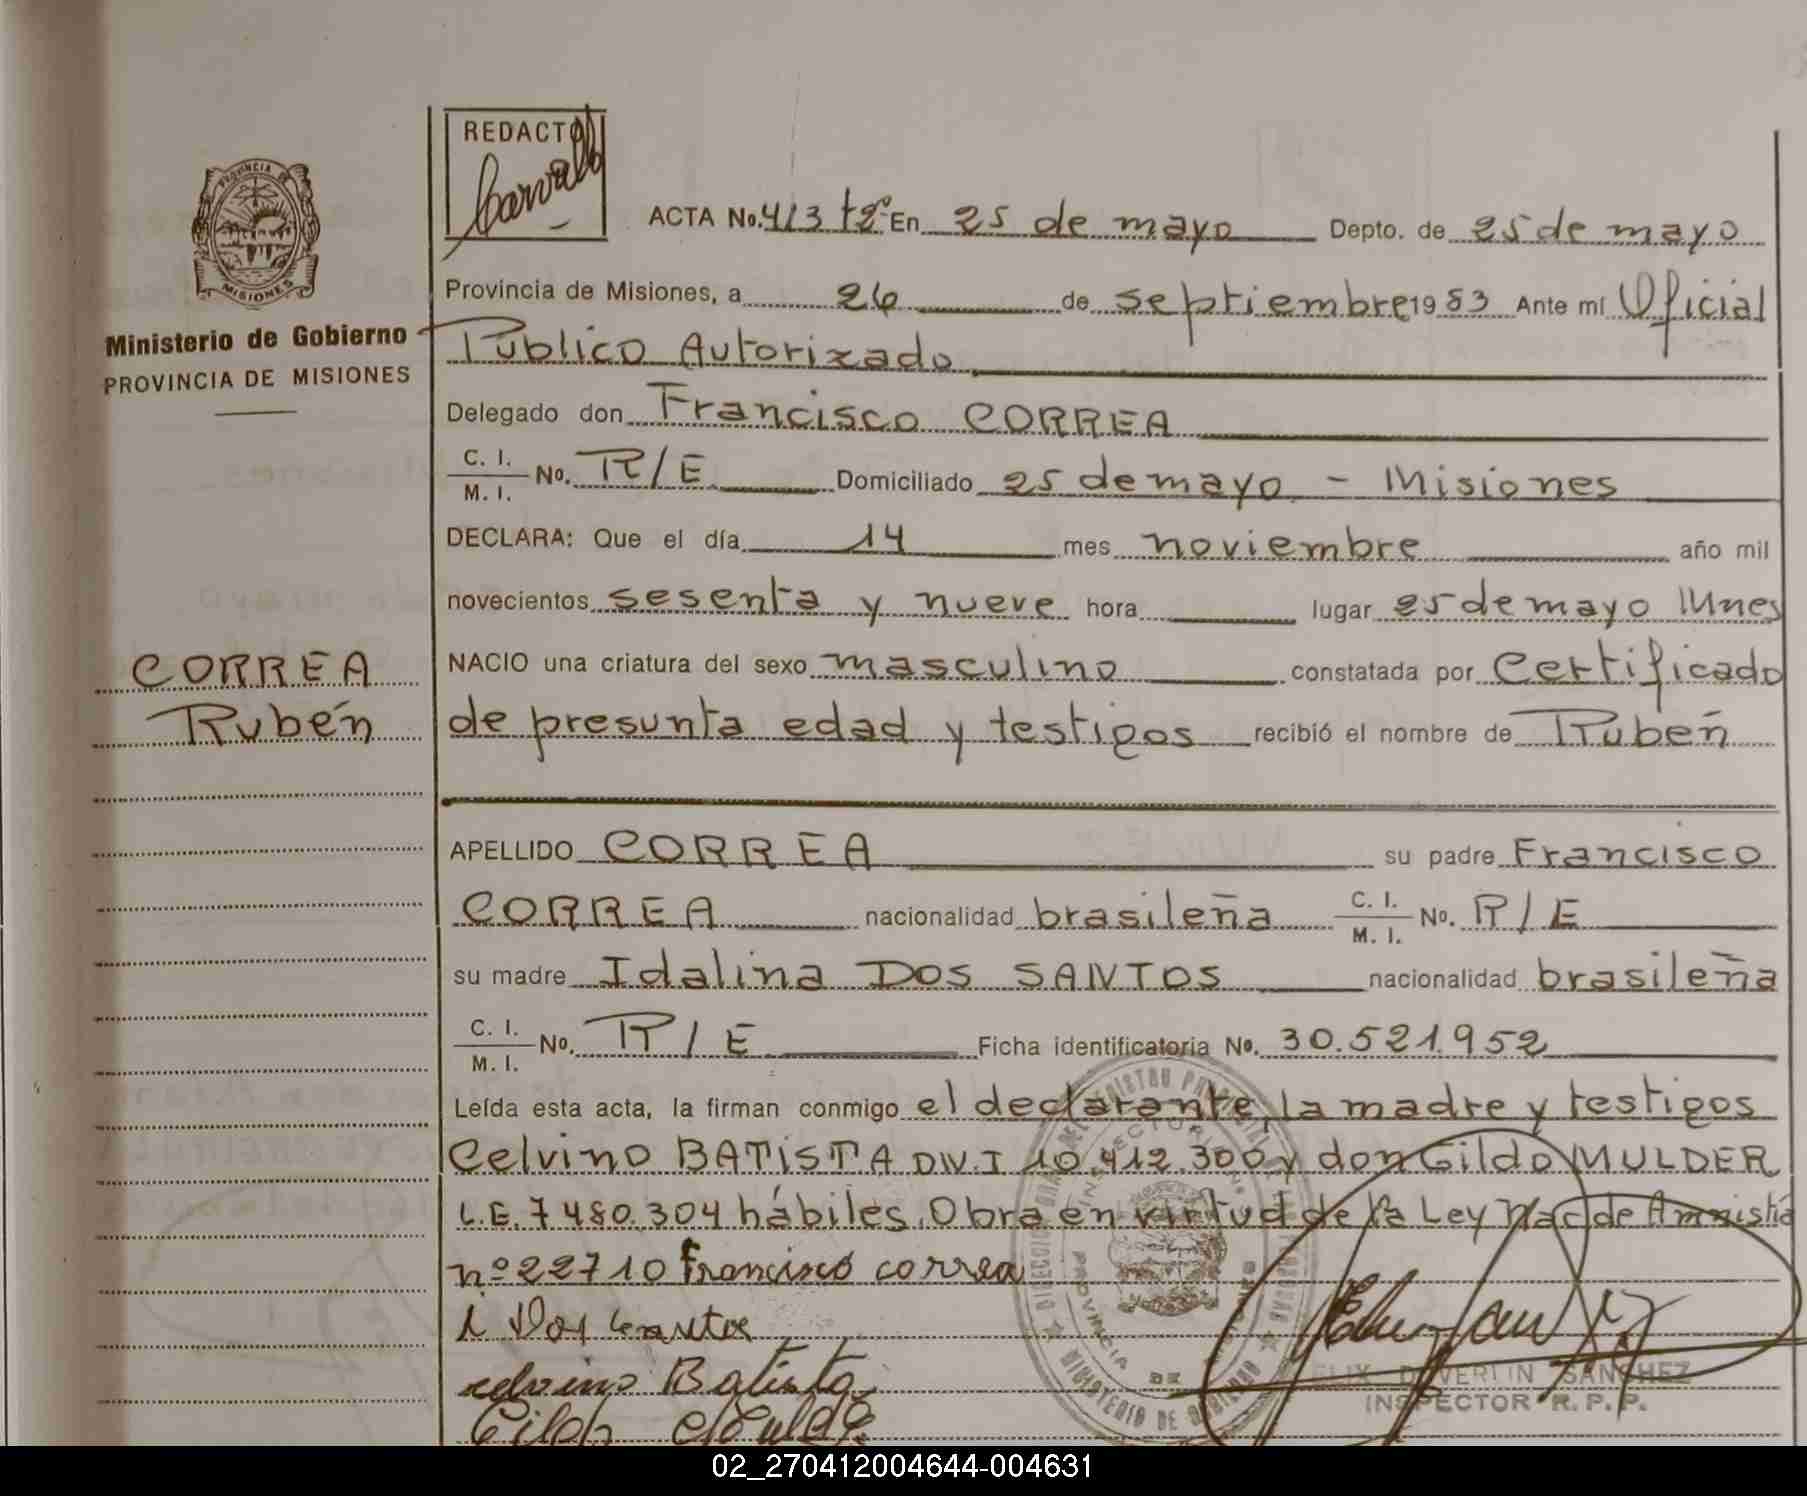 REDACTOR
Carvallo
PROVINCIA DE
MISIONES
Ministerio de Gobierno
PROVINCIA DE MISIONES
ACTA No. 413 tº2º En 25 de mayo Depto. de 25 de mayo
Provincia de Misiones, a 26 de septiembre 1983 Ante mí Oficial
Público Autorizado
Delegado don Francisco CORREA
C. I. / M. I. No. R/E Domiciliado 25 de mayo - Misiones
DECLARA: Que el día 14 mes noviembre año mil
novecientos sesenta y nueve hora lugar 25 de mayo lunes
CORREA
Rubén
NACIO una criatura del sexo masculino constatada por Certificado
de presunta edad y testigos recibió el nombre de Rubén
APELLIDO CORREA su padre Francisco
CORREA nacionalidad brasileña C. I. / M. I. No. R/E
su madre Idalina DOS SANTOS nacionalidad brasileña
C. I. / M. I. No. R/E Ficha identificatoria No. 30.521.952
Leída esta acta, la firman conmigo el declarante, la madre y testigos
Celvino BATISTA D.N.I 10.412.300 y don Gildo MULDER
L.E. 7480.304 hábiles. Obra en virtud de la Ley Nac de Amnistía
nº 22710 Francisco correa
i Dos santos
celvino Batista
Gildo Mulder
FELIX DEVERLIN SANCHEZ
INSPECTOR R. P. P.
02_270412004644-004631